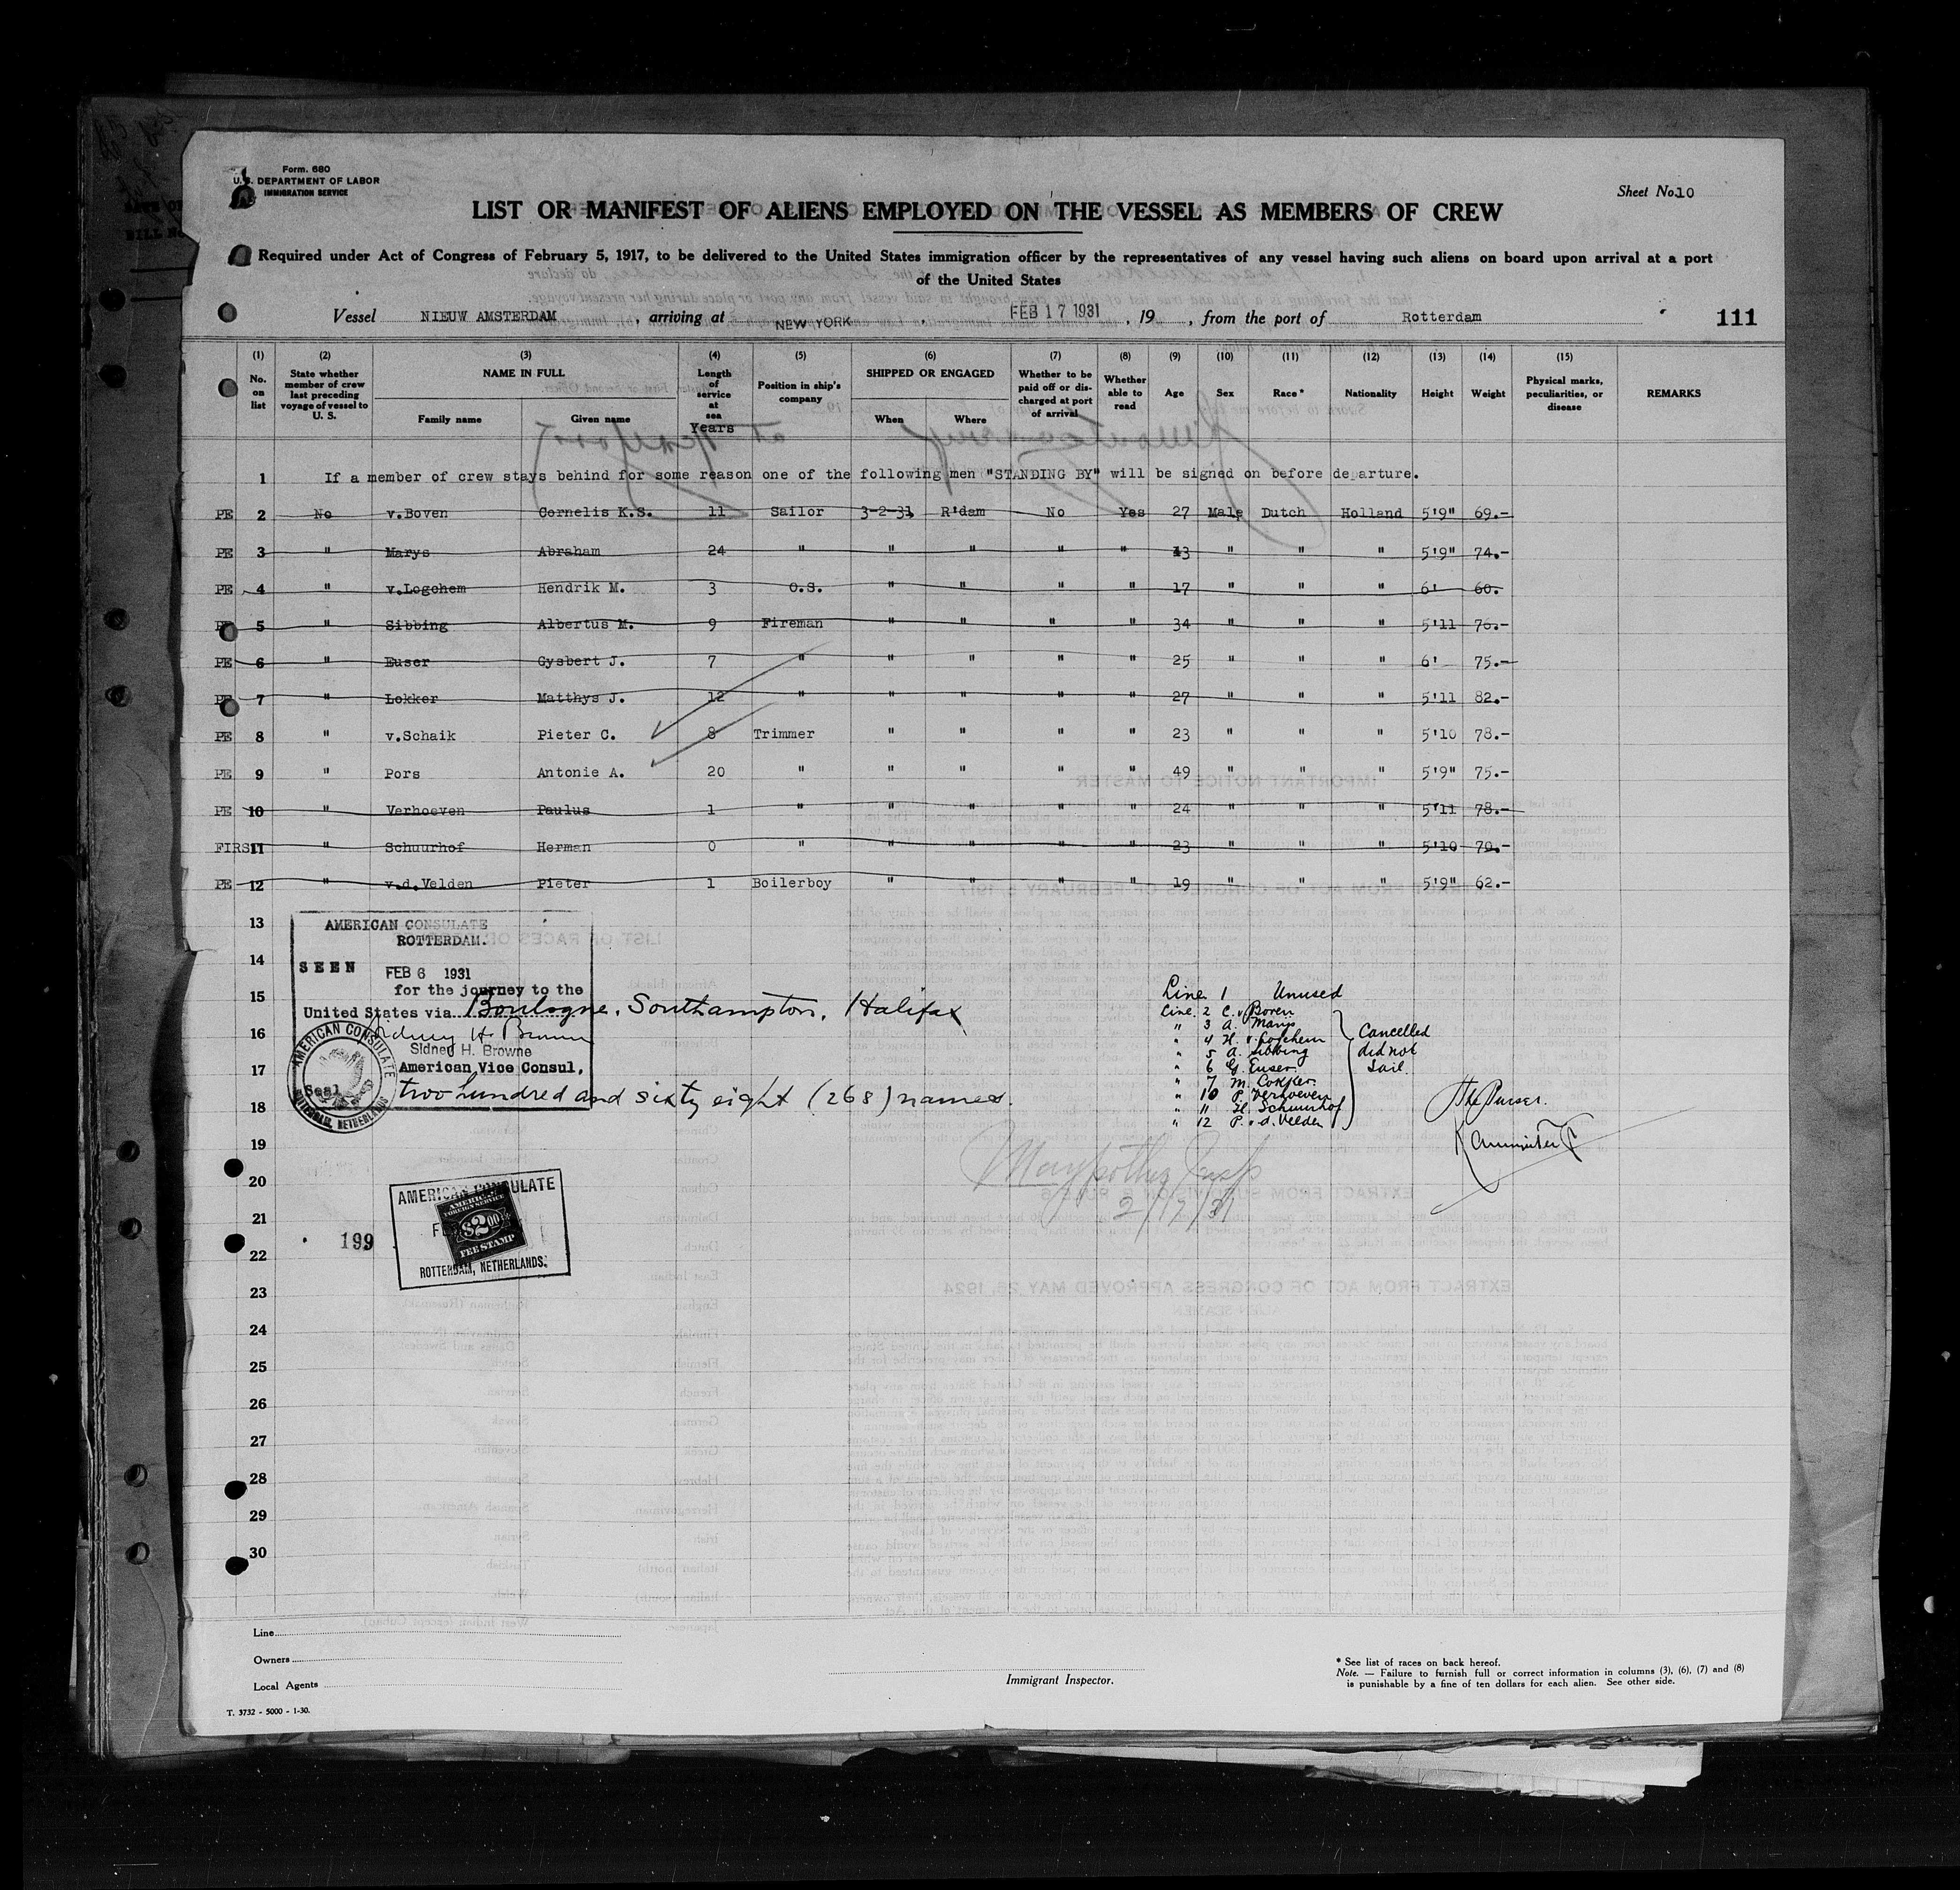 Form. 680
U. S. DEPARTMENT OF LABOR
IMMIGRATION SERVICE
Sheet No. 10
LIST OR MANIFEST OF ALIENS EMPLOYED ON THE VESSEL AS MEMBERS OF CREW
Required under Act of Congress of February 5, 1917, to be delivered to the United States immigration officer by the representatives of any vessel having such aliens on board upon arrival at a port
of the United States
Vessel NIEUW AMSTERDAM, arriving at NEW YORK, FEB 17 1931, 19 , from the port of Rotterdam
111
(1) (2) (3) (4) (5) (6) (7) (8) (9) (10) (11) (12) (13) (14) (15)
No. on list
State whether member of crew last preceding voyage of vessel to U. S.
NAME IN FULL
Family name
Given name
Length of service at sea
Years
Position in ship's company
SHIPPED OR ENGAGED
When
Where
Whether to be paid off or discharged at port of arrival
Whether able to read
Age
Sex
Race *
Nationality
Height
Weight
Physical marks, peculiarities, or disease
REMARKS
1 If a member of crew stays behind for some reason one of the following men "STANDING BY" will be signed on before departure.
PE 2 No v.Boven Cornelis K.S. 11 Sailor 3-2-31 R'dam No Yes 27 Male Dutch Holland 5'9" 69.-
PE 3 " Marys Abraham 24 " " " " " 43 " " " 5'9" 74.-
PE 4 " v.Logchem Hendrik M. 3 O.S. " " " " 17 " " " 6' 60.
PE 5 " Sibbing Albertus M. 9 Fireman " " " " 34 " " " 5'11 76.-
PE 6 " Euser Gysbert J. 7 " " " " " 25 " " " 6' 75.-
PE 7 " Lokker Matthys J. 12 " " " " " 27 " " " 5'11 82.-
PE 8 " v.Schaik Pieter C. 8 Trimmer " " " " 23 " " " 5'10 78.-
PE 9 " Pors Antonie A. 20 " " " " " 49 " " " 5'9" 75.-
PE 10 " Verhoeven Paulus 1 " " " " " 24 " " " 5'11 78.-
FIRST 11 " Schuurhof Herman 0 " " " " " 23 " " " 5'10 70.-
PE 12 " v.d.Velden Pieter 1 Boilerboy " " " " 19 " " " 5'9" 62.-
13
14
15
16
17
18
19
20
21
22
23
24
25
26
27
28
29
30
AMERICAN CONSULATE
ROTTERDAM.
SEEN FEB 6 1931
for the journey to the
United States via Boulogne, Southampton, Halifax
Sidney H. Browne
Sidney H. Browne
American Vice Consul,
two hundred and sixty eight (268) names.
AMERICAN CONSULATE
Seal
ROTTERDAM, NETHERLANDS
Line 1 Unused
Line 2 C. v. Boven
" 3 A. Marys
" 4 H. v. Logchem
" 5 A. Sibbing
" 6 G. Euser
" 7 M. Lokker
" 10 P. Verhoeven
" 11 H. Schuurhof
" 12 P. v. d. Velden
Cancelled
did not
Sail.
The Purser.
2/17/31
199
AMERICAN CONSULATE
AMERICAN
FOREIGN SERVICE
$2.00
FEE STAMP
ROTTERDAM, NETHERLANDS.
Line
Owners
Local Agents
Immigrant Inspector.
* See list of races on back hereof.
Note. — Failure to furnish full or correct information in columns (3), (6), (7) and (8)
is punishable by a fine of ten dollars for each alien. See other side.
T. 3732 - 5000 - 1-30.